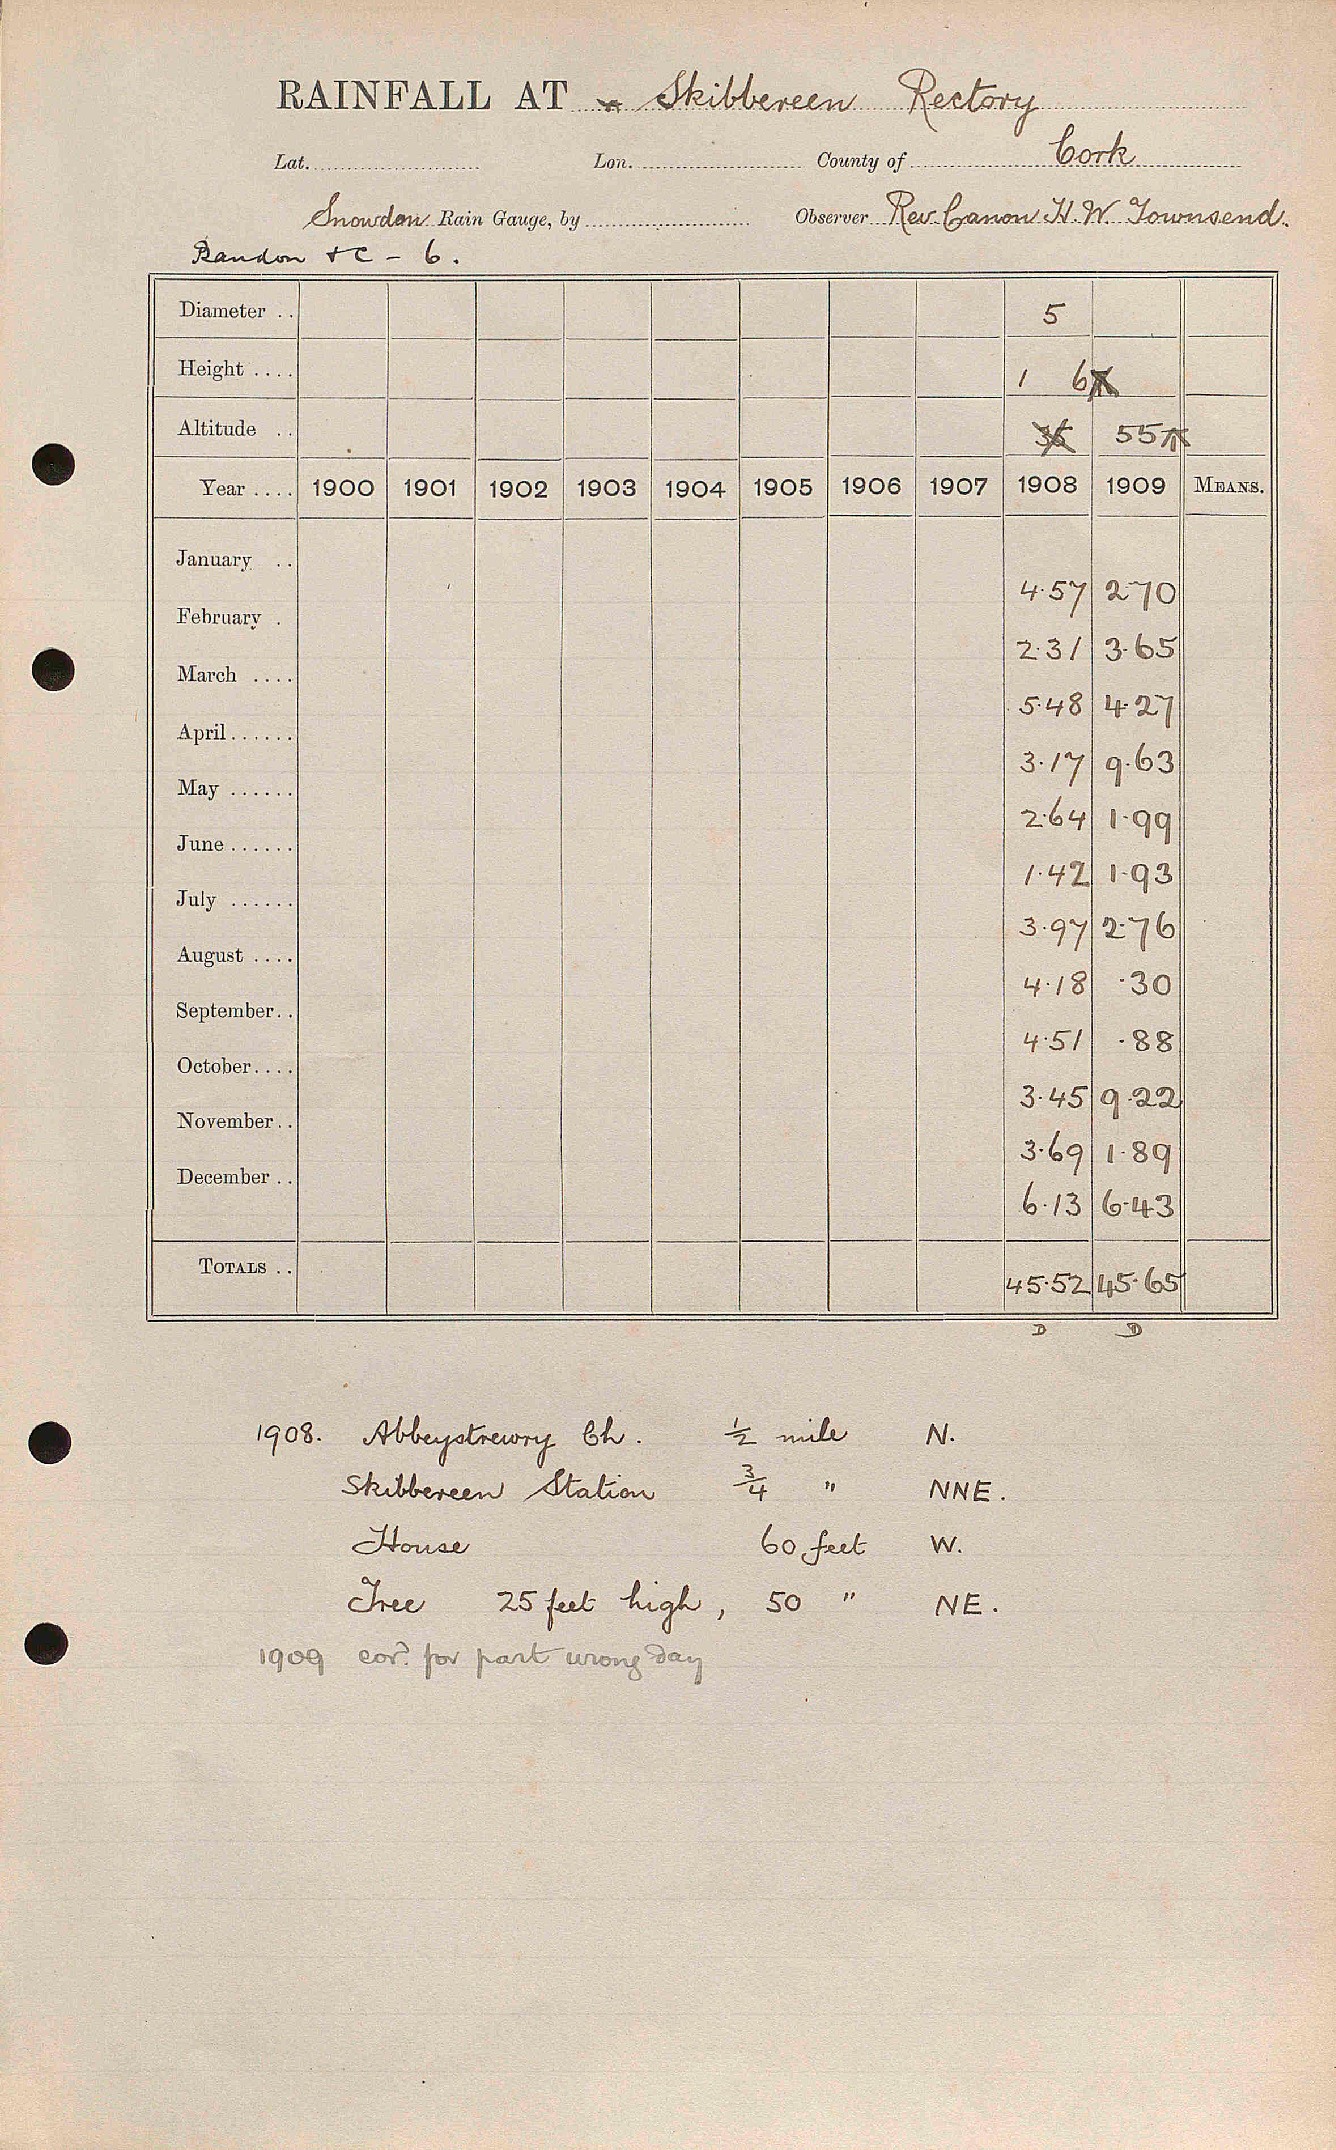 RAINFALL AT Skibbereen Rectory
Lat. Lon. County of Cork
Snowdon Rain Gauge, by Observer Rev. Canon H. W. Townsend.
Bandon + C - 6.
Diameter .. 5
Height .... 1 6
Altitude .. 36 55
Year .... 1900 1901 1902 1903 1904 1905 1906 1907 1908 1909 MEANS.
January .. 4.57 2.70
February . 2.31 3.65
March .... 5.48 4.27
April...... 3.17 9.63
May ...... 2.64 1.99
June ...... 1.42 1.93
July ...... 3.97 2.76
August .... 4.18 .30
September.. 4.51 .88
October.... 3.45 9.22
November.. 3.69 1.89
December .. 6.13 6.43
TOTALS .. 45.52 45.65
D D
1908. Abbeystrewry Ch. ½ mile N.
Skibbereen Station ¾ " NNE.
House 60 feet W.
Tree 25 feet high, 50 " NE.
1909 cord. for part wrong day